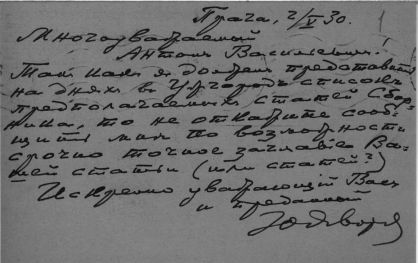 Прага, 2/V 30.
Многоуважаемый
Антон Васильевич.
Так как я должен представить
на днях в Ужгород список
предполагаемых статей Сбор-
ника, то не откажите сооб-
щить мне по возможности
срочно точное заглавие Ва-
шей статьи (или статей?)
Искренно уважающий Вас
и преданный